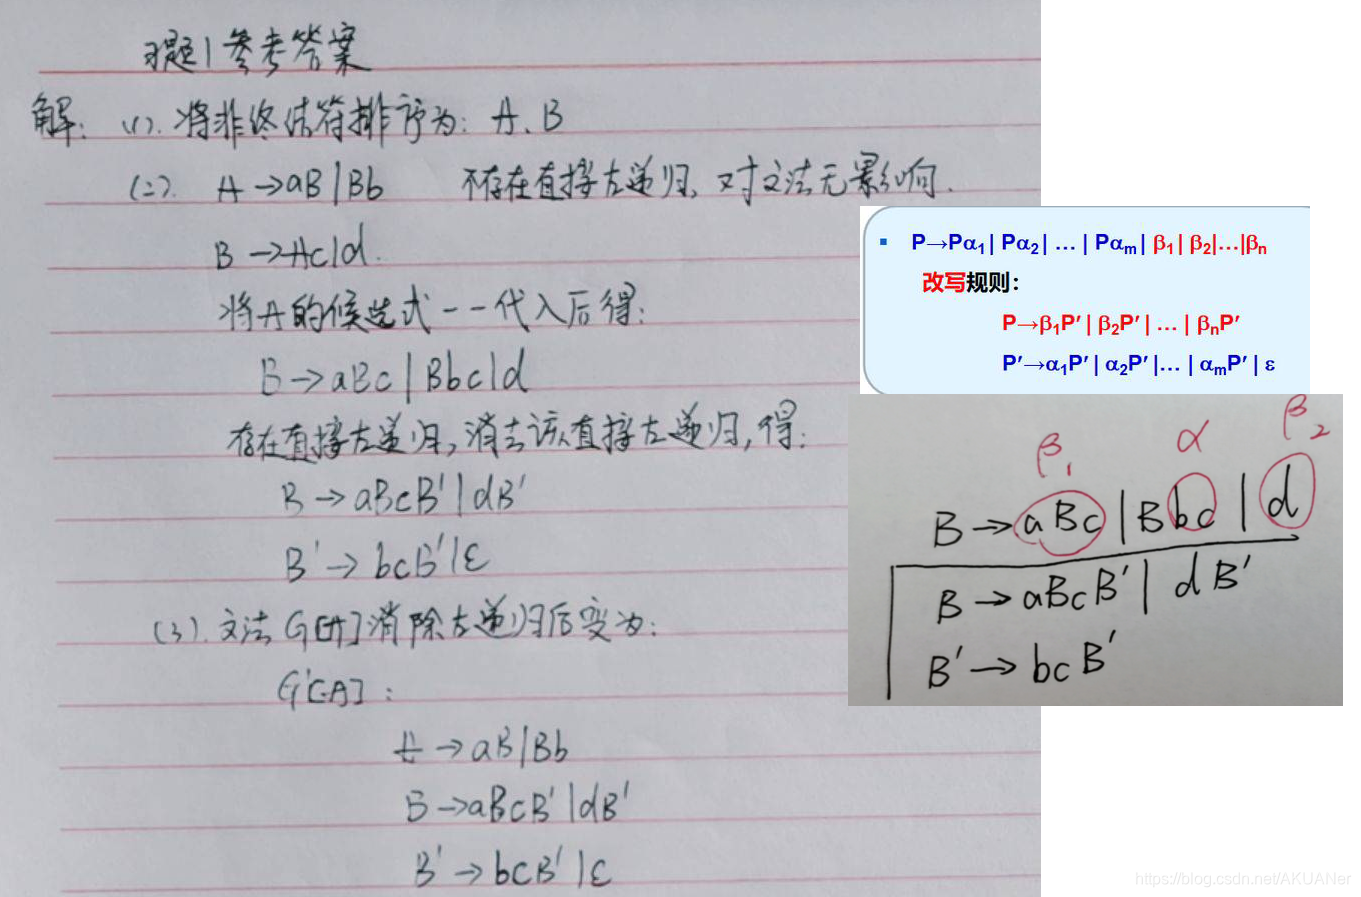 习题1参考答案
解: (1). 将非终结符排序为: A、B
(二). A→aB|Bb 不存在直接左递归, 对文法无影响.
B→Ac|d.
将A的候选式一一代入后得:
B→aBc|Bbc|d
存在直接左递归, 消去该直接左递归, 得:
B→aBcB'|dB'
B'→bcB'|ε
(3). 文法G[A]消除左递归后变为:
G'[A]:
A→aB|Bb
B→aBcB'|dB'
B'→bcB'|ε
▪ P→Pα₁| Pα₂| … | Pαₘ| β₁| β₂|…|βₙ
改写规则:
P→β₁P′| β₂P′| … | βₙP′
P′→α₁P′| α₂P′|… | αₘP′| ε
β₁ α β₂
B→aBc|Bbc|d
B→aBcB'| dB'
B'→bcB'
https://blog.csdn.net/AKUANer